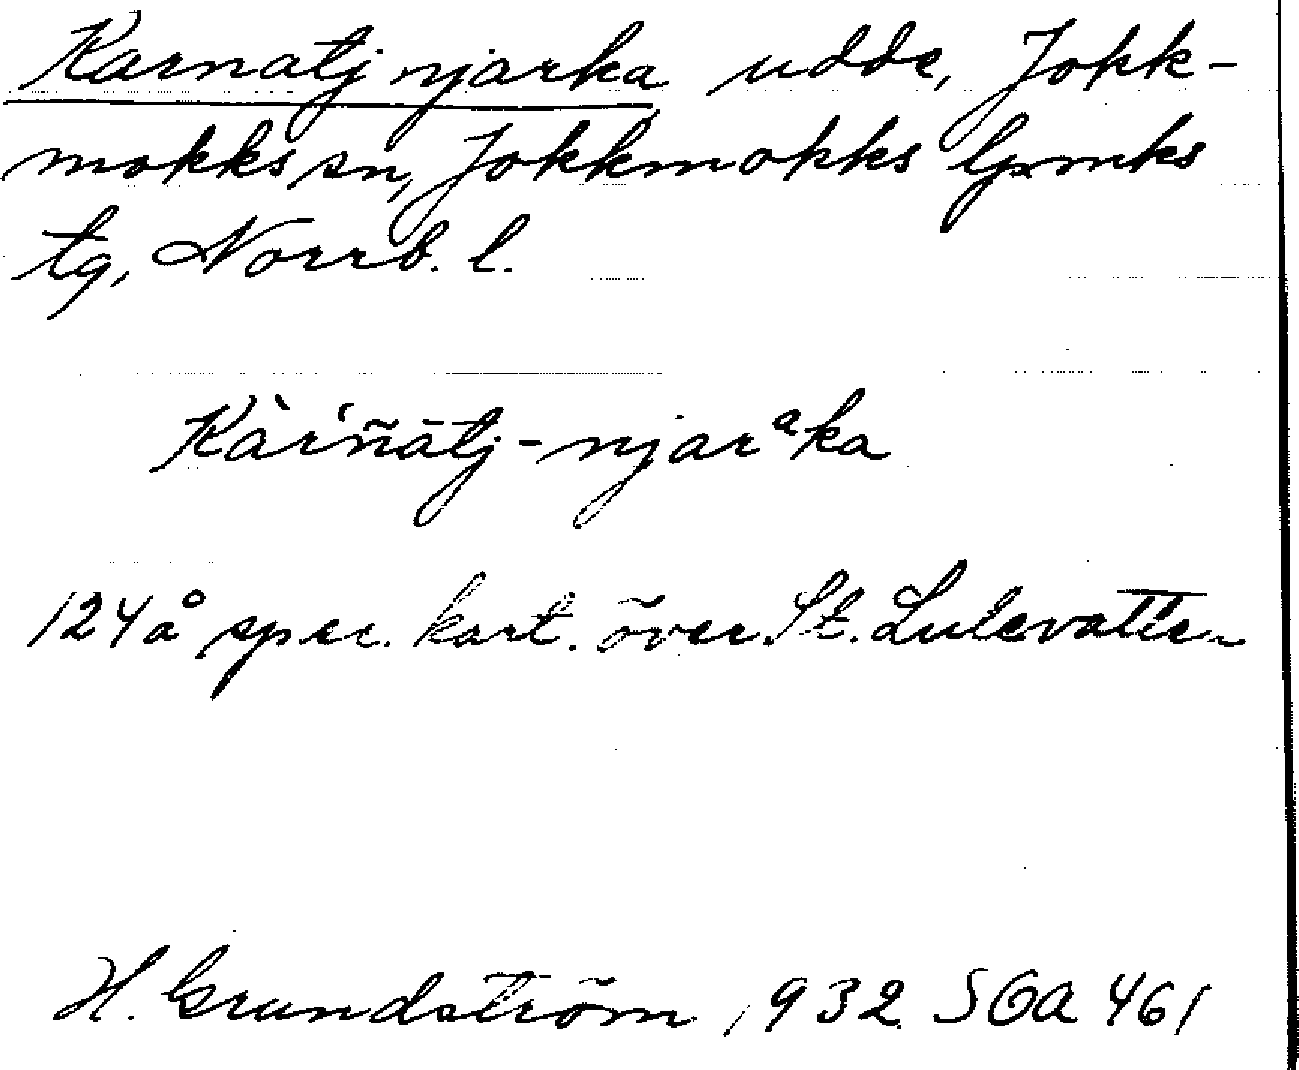 Karnatj njarka udde, Jokk-
mokks sn, Jokkmokks lpmks
tg, Norrb. l.
Kàr'ñātj-njarᵃka
124 å spec. kart. över St. Lulevatten
H. Grundström 1932 SOA 461